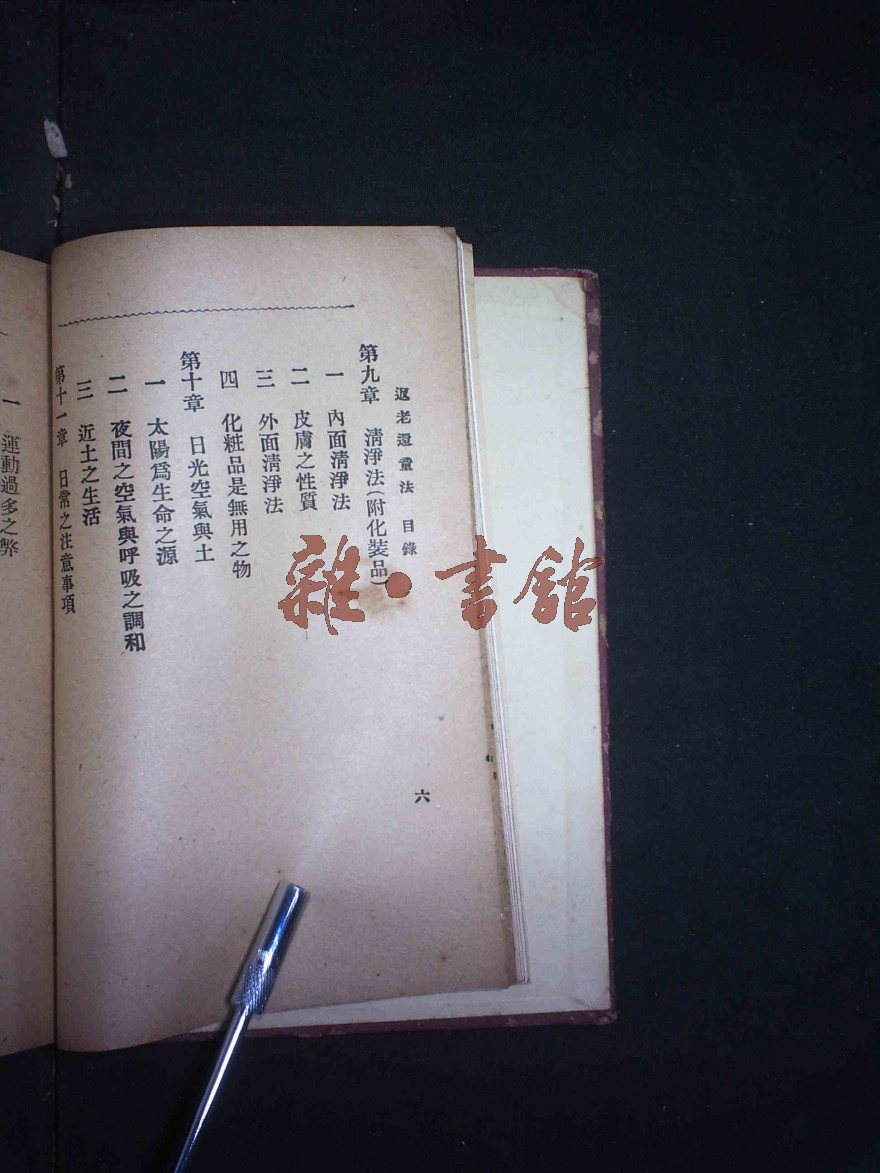 返老還童法 目錄
第九章 淸淨法(附化裝品)
一 內面淸淨法
二 皮膚之性質
三 外面淸淨法
四 化粧品是無用之物
第十章 日光空氣與土
一 太陽爲生命之源
二 夜間之空氣與呼吸之調和
三 近土之生活
第十一章 日常之注意事項
六
一 運動過多之弊
雜·書館